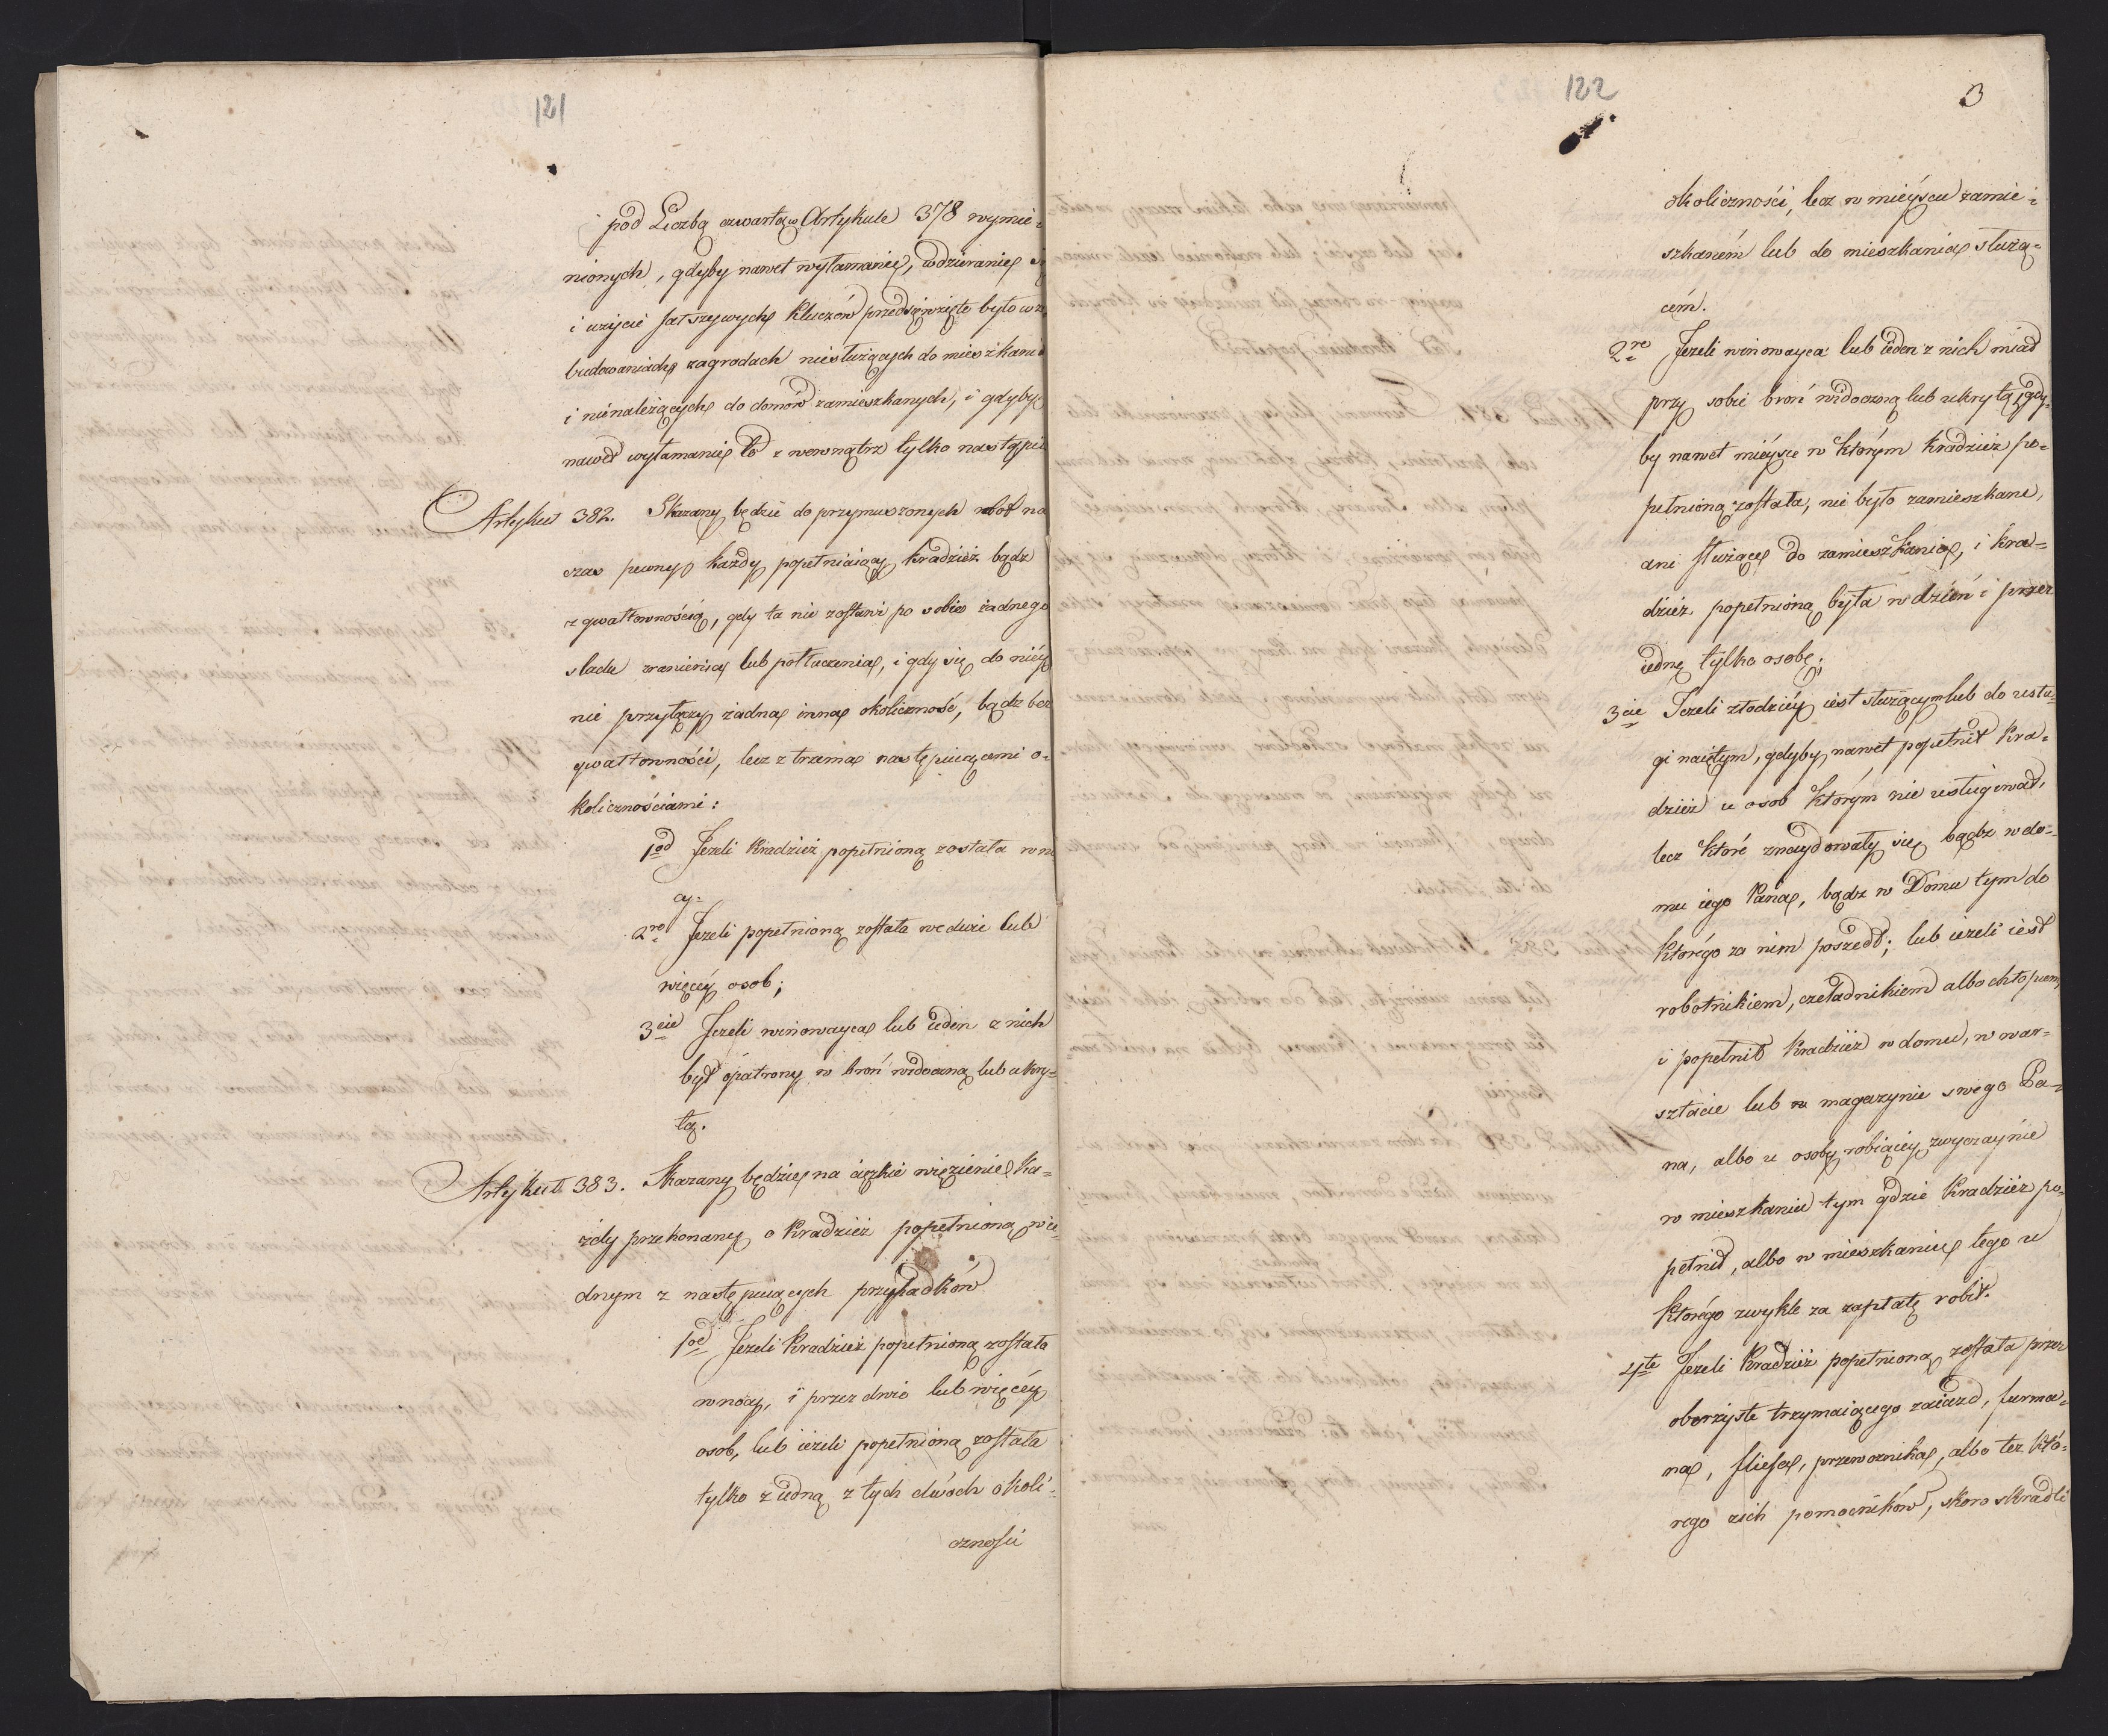 121
pod Liczbą czwartą w Artykule 378 wymie-
nionych, gdyby nawet wyłamanie, wdzieranie
i użycie fałszywych kluczów przedsięwzięte było w
budowaniach, zagrodach niesłużących do
i nienależących do domów zamieszkanych, i gdyby
nawet wyłamanie to z wewnątrz tylko
Artykuł 382. Skazany będzie do przymuszonych robot na
czas pewny każdy popełniaiący kradzież bądz
z gwałtownością, gdy ta nie zostawi po sobie żadnego
sladu zranienia lub potłuczenia, i gdy się do niéy
nie przyłączy żadna inna okoliczność, bądz bez
gwałtowności, lecz z trzema następuiącemi o-
kolicznościami:
1od Jeżeli kradzież popełniona została w no
cy-
2re Jeżeli popełnioną została we dwie lub
więcéy osob;
3cie Jeżeli winowayca lub ieden z nich
był opatrony w broń widoczną lub ukry-
tą.
Artykuł 383. Skazany będzie na ciężkie więzienie ka-
żdy przekonany o kradzież popełnioną w ie-
dnym z następuiących przypadków
1od Jeżeli kradzież popełnioną została
w nocy, i przez dwie lub więcéy
osob, lub ieżeli popełnioną została
tylko z iedną z tych dwóch okoli-
czności
122
3
okoliczności, lecz w mieyscu zamie-
szkaném lub do mieszkania służą-
cém.
2re Jeżeli winowayca lub ieden z nich miał
przy sobie broń widoczną lub ukrytą, gdy-
by nawet mieysce w którym kradzież po-
pełnioną została, nie było zamieszkane,
ani służące do zamieszkania, i kra-
dzież popełnioną była w dzień i przez
iednę tylko osobę;
3cie Jeżeli złodziéy iest służącym lub do usłu-
gi naiętym, gdyby nawet popełnił kra-
dzież u osob którym nie usługiwał,
lecz które znaydowały się bądz w do-
mu iego Pana, bądz w Domu tym do
którégo za nim poszedł; lub ieżeli iest
robotnikiem, czeladnikiem albo chłopcem,
i popełnił kradzież w domu, w war-
sztacie lub w magazynie swego Pa-
na, albo u osoby robiącéy zwyczaynie
w mieszkaniu tym gdzie kradzież po-
pełnił, albo w mieszkaniu tego u
którégo zwykle za zapłatę robił.
4te Jeżeli kradzież popełnioną została przez
oberżystę trzymaiącego zaiazd, furma-
na, flisa, przewoznika, albo też któ-
rego z ich pomocników, skoro skradli